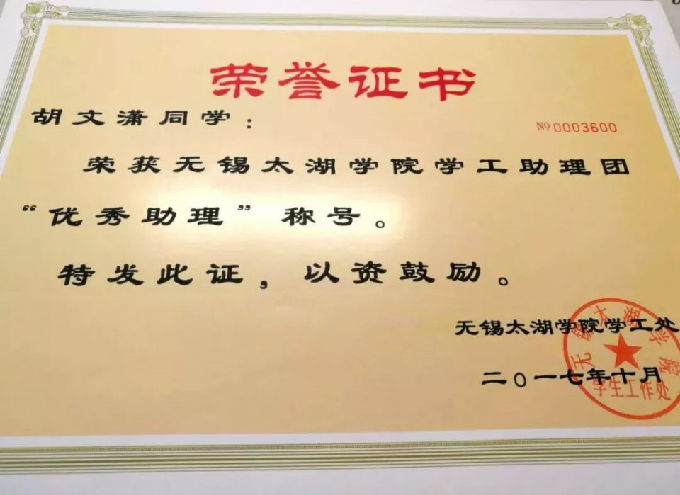 荣誉证书
胡文潇同学：
№0003600
荣获无锡太湖学院学工助理团
“优秀助理”称号。
特发此证，以资鼓励。
无锡太湖学院学工处
二〇一七年十月
无锡太湖学院
学生工作处